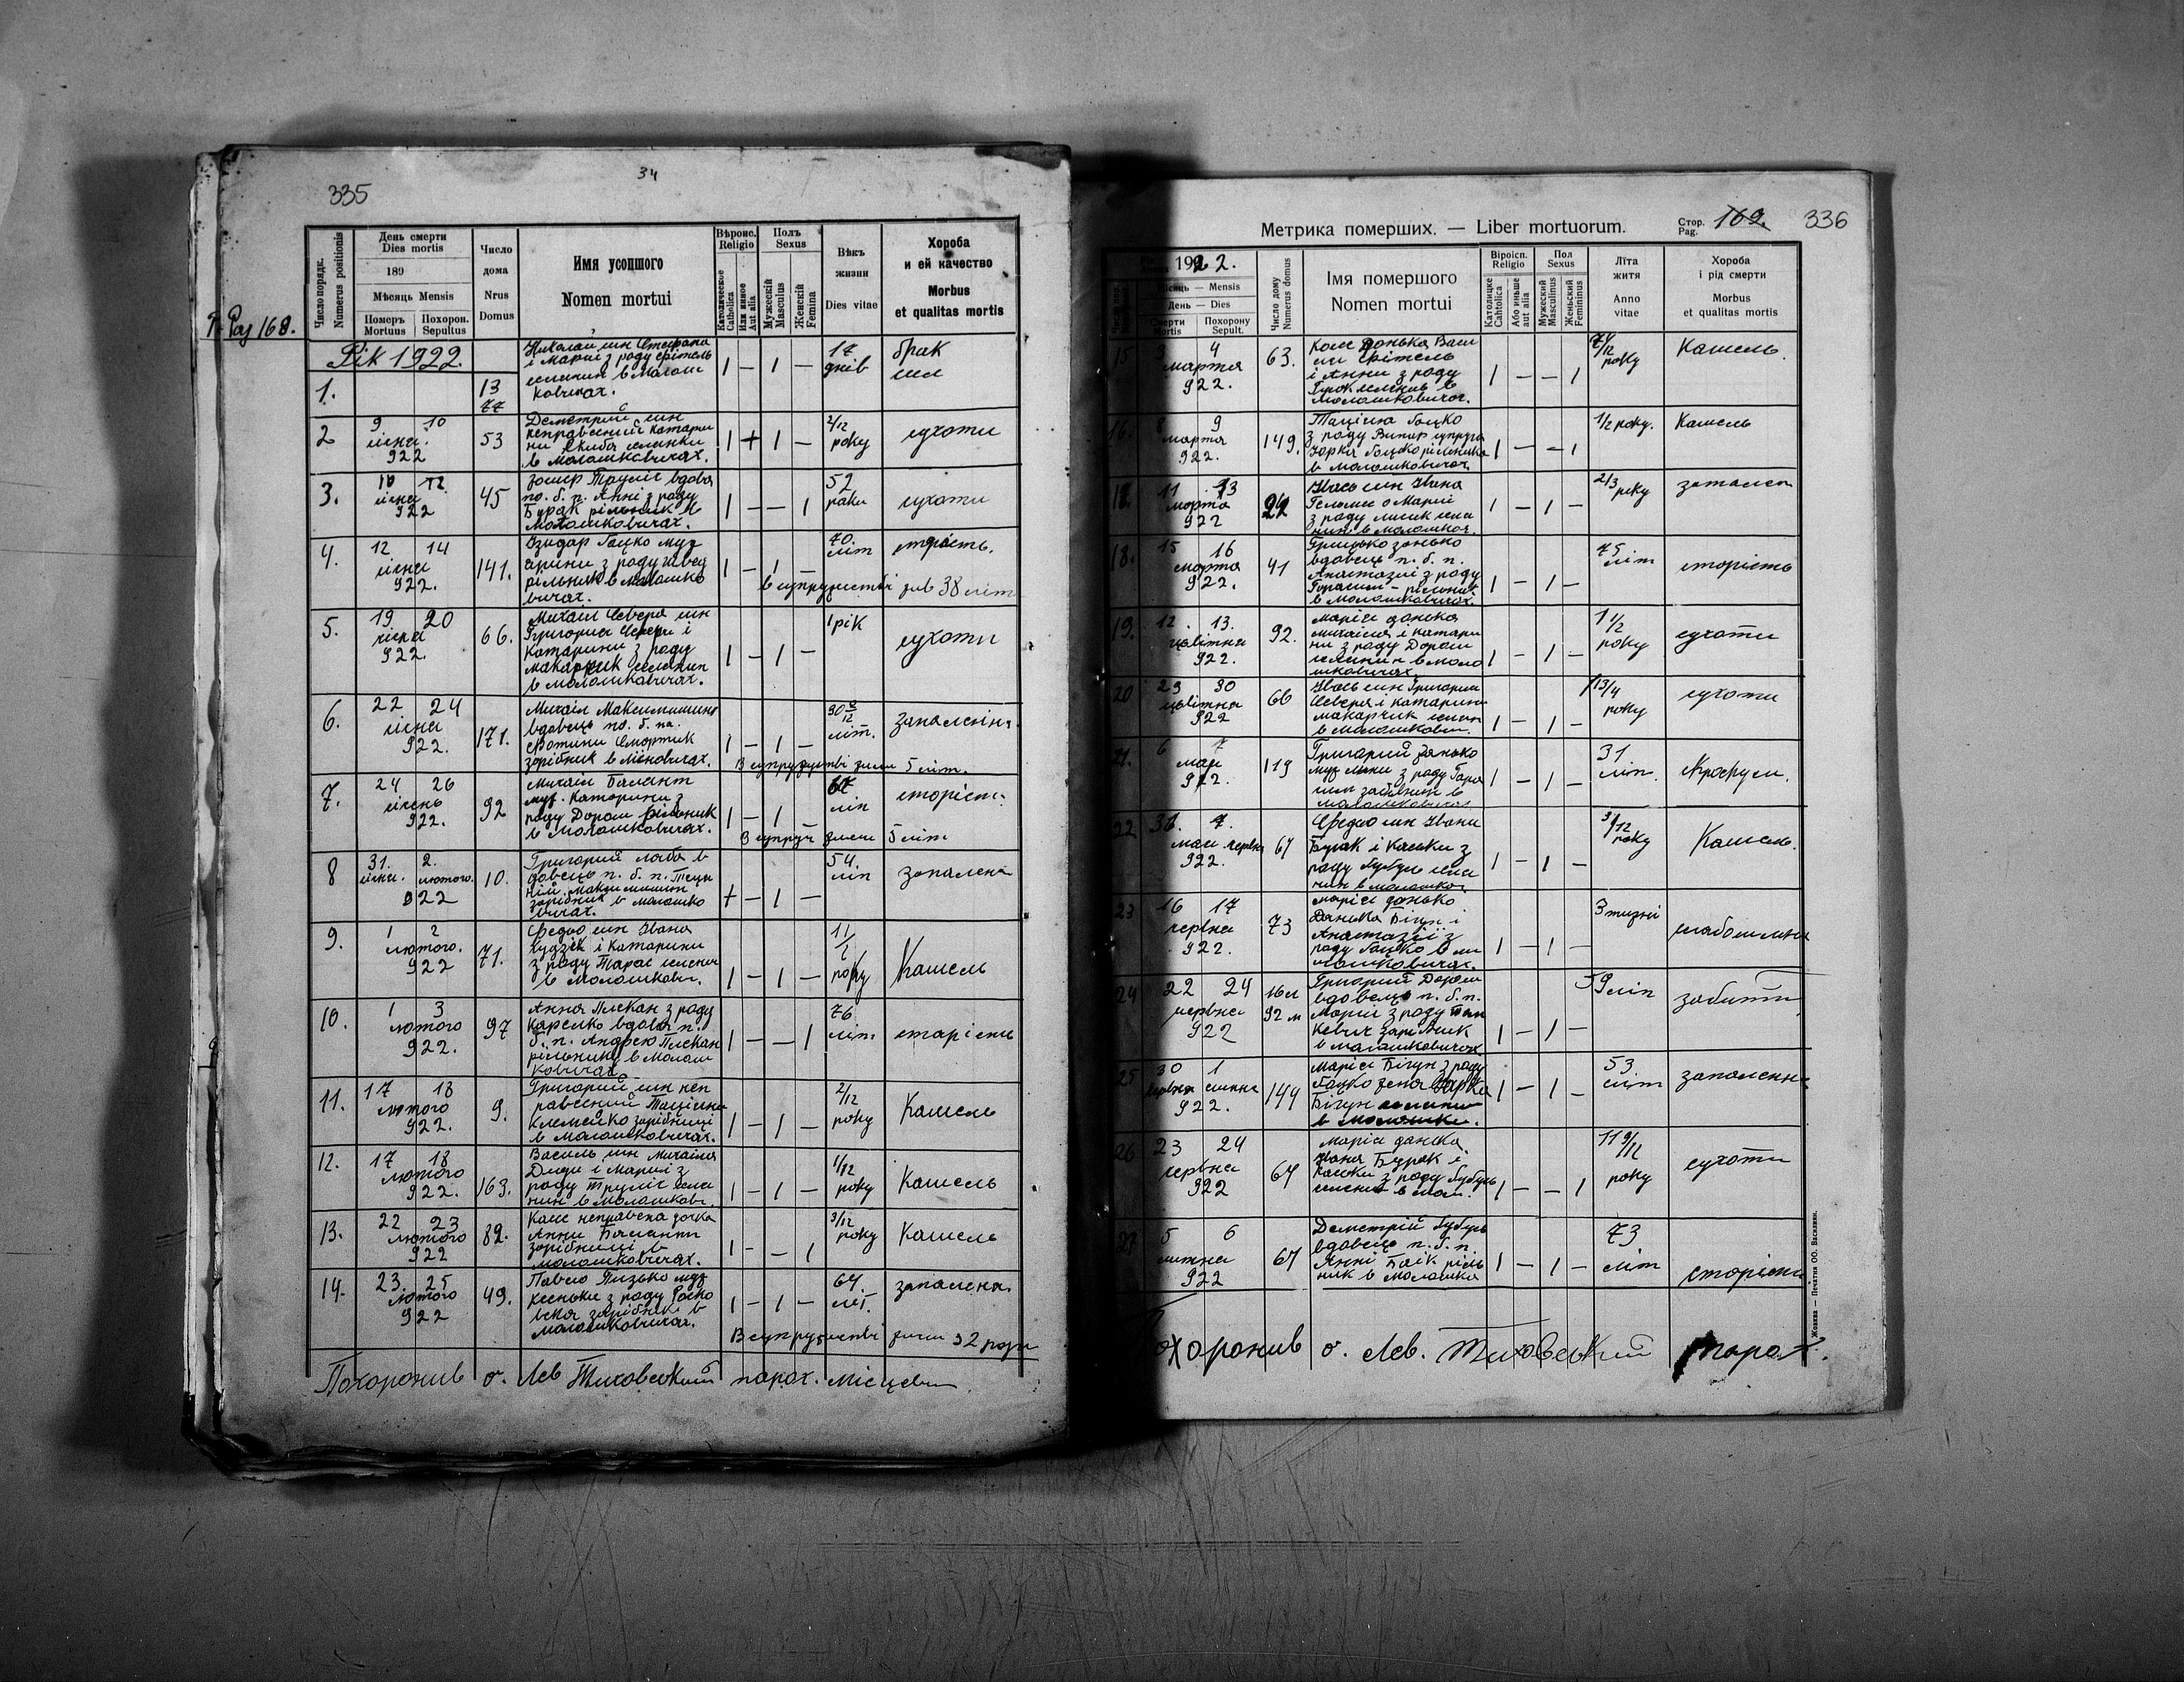 335
34
T. Pag 168.
Число порядк.
Numerus positionis
День смерти
Dies mortis
189
Мѣсяць Mensis
Померъ
Mortuus
Похорон.
Sepultus
Число
дома
Nrus
Domus
Имя усопшого
Nomen mortui
Вѣроис.
Religio
Католическое
Catholica
Или инное
Aut alia
Полъ
Sexus
Мужескій
Masculus
Женскій
Femina
Вѣкъ
жизни
Dies vitae
Хороба
и ей качество
Morbus
et qualitas mortis
Рік 1922.
1.
13
77
Николай син Стефана
і Марії з роду
селянин в Молош
ковичах.
1 — 1 —
17
днів
брак
сил
2
9 10
січня.
922
53
Деметрий син
неправесний Катари
ни Скиба селянки
в Молошковичах.
1 + 1 —
2/12
року
сухоти
3.
10 12
січня
922
45
вдова
по. б. п. Анні з роду
Бурак рільник в
Молошковичах.
1 — — 1
52
роки
сухоти
4.
12 14
січня
922.
141.
Ізидор Гоцко муж
Ірини з роду Швед
рільник в Молошко
вичах.
1 — 1 —
70.
літ
старість.
в супружестві жив 38 літ
5.
19 20
січня
922.
66.
Михаіл Севера син
Григория Севери і
Катарини з роду
Макарчик селянин
в Молошковичах.
1 — 1 —
1 рік
сухоти
6.
22 24
січня
922.
171.
Михаіл Максимишин
вдовець по. б. па.
Фотини Смортик
зарібник в
1 — 1 —
літ.
запаленя
В супружустві жили 5 літ.
7.
24 26
січень
922.
92
Михаіл Балант
муж. Катарини з
роду Дорош рільник
в Молошковичах.
1 — 1 —
67
літ
старість.
В супруж жили 5 літ
8
31. 2.
січня. лютого.
922
10.
Григорий лаба в
довець п. б. п. Теці
ній. Максимишин
зарібник в Молошко
вичах.
+ — 1 —
54.
літ
запаленя
9.
1 2
лютого.
922
71.
Федьо син Івана
Кудзік і Катарини
з роду Тарас селяни
в Молошкови.
1 — 1 —
року
Кашель
10.
1 3
лютого
922.
97
Анна Плекан з роду
Карепко вдова п.
б. п. Андрею Плекан
рільнику в Молош
ковичах
1 — — 1
76
літ
старість
11.
17 18
лютого
922.
9.
Григорий син неп
равесний Тацінни
Клемейко зарібниці
в Молошковичах.
1 — 1 —
2/12
року
Кашель
12.
17 18
лютого
922.
163.
Василь син Михаіла
Диди і Марії з
роду Труліс селя
нин в Молошкови.
1 — 1 —
1/12
року
Кашель
13.
22 23
лютого
922
82.
Касс неправена дочка
Анни Балант
зарібниці в
Молошковичах.
1 — — 1
3/12
року
Кашель
14.
23. 25
лютого
922
49.
Павло Тизько муж
Ксеньки з роду
зарібник в
Молошковичах.
1 — 1 —
64.
літ.
запаленя
В супружестві жили 32 роки
Похоронив о. Лев Тиховський парох. місцевий
Метрика померших. — Liber mortuorum.
Стор.
Pag.
169.
336
1922.
Місяць — Mensis
День — Dies
Смерти
Mortis
Похорону
Sepult.
Число дому
Numerus domus
Імя помершого
Nomen mortui
Віроісп.
Religio
Католицке
Cahtolica
Або инъше
aut alia
Пол
Sexus
Мужеский
Masculinus
Женьский
Femininus
Літа
житя
Anno
vitae
Хороба
і рід смерти
Morbus
et qualitas mortis
4
марта
922.
63.
Касс донька Васи
ля
і Анни з роду
в
Молошковичах.
1 — — 1
року
Кашель.
16.
8 9
марта
922.
149.
Тацінна Гоцко
з роду Випар супруга
Юрка Гоцко рільника
в Молошковичах
1 — — 1
1/2 року.
Кашель
11 13
марта
922
22
Івась син Івана
і Марії
з роду лисик селя
нин в Молошков.
1 — 1 —
2/3 року
запален
18.
15 16
марта
922.
41
Грицько Занько
вдовець п. б. п.
Анастазиі з роду
Гарасим — рільник
в Молошковичах.
1 — 1 —
75
літ
старість
19.
12. 13.
цвітня
922.
92.
Марія донька
Михаіла і Катари
ни з роду Дорош
селянин в Моло
шковичах
1 — 1 —
1 1/2
року
сухоти
20
29 30
цвітня
922
66
Івась син Григория
Севера і Катарини
Макарчик селян
в Молошкови.
1 — 1 —
1 3/4
року
сухоти
21.
6 7
мая
922.
119
Григорий Занько
муж з роду Гара
сим зарібник в
Молошковичах
1 — 1 —
31
літ.
22
31. 2.
мая червня
922.
67
Федьо син Івана
Бурак і Каськи з
роду Бубуль селя
нин в Молошков
1 — 1 —
3/12
року
Кашель.
23
16 17
червня
922.
73
Марія донько
Данька Бігун і
Анастазії з
роду Гоцко в мо
лошковичах.
1 — 1 —
3 тижні
слабосильна
24
22 24
червня
922
92
Григорий Дорош
вдовець п. б. п.
Марії з роду
кевич зарібник
в Молошковичах
1 — 1 —
59 літ
забитий
25
30 1
червня липня
922.
144
Марія Бігун з роду
Гоцко жена Юрка
Бігун селянин
в Молошкови.
1 — 1 —
53
літ
запаленя
26
23 24
червня
922
67
Марія донька
Івана Бурак і
Каськи з роду Бубуль
селянин в Мол.
1 — — 1
11 9/12
року
сухоти
27
5 6
липня
922
67
Деметрій Бубуль
вдовець п. б. п.
Анні Баік ріль
ник в Молошко
1 — 1 —
73
літ
старість
Похоронив о. Лев. Тиховський парох.
Жовква — Печатня ОО. Василиян.